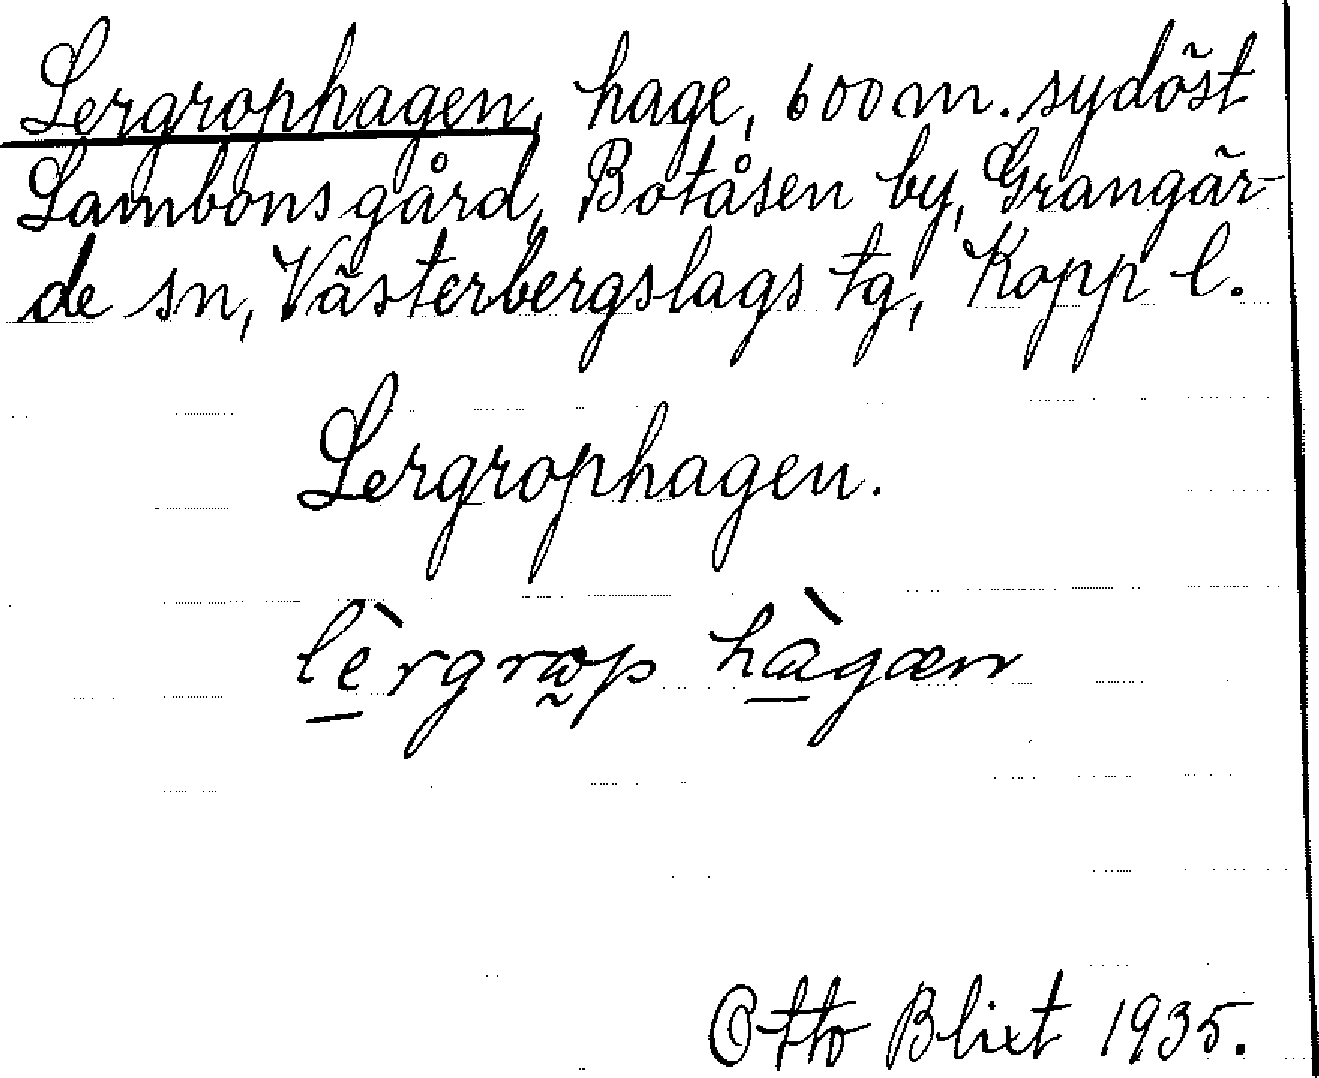 Lergrophagen, hage, 600 m. sydöst
Lambons gård, Botåsen by, Grangär-
de sn, Västerbergslags tg, Kopp l.
Lergrophagen.
lèrgrop hàgæn
Otto Blixt 1935.